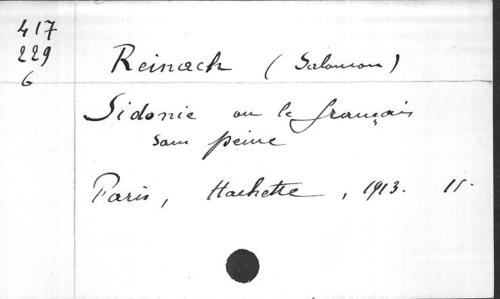 417
229
6
Reinach (Salomon)
Sidonie ou le français
sans peine
Paris, Hachette, 1913. 11.